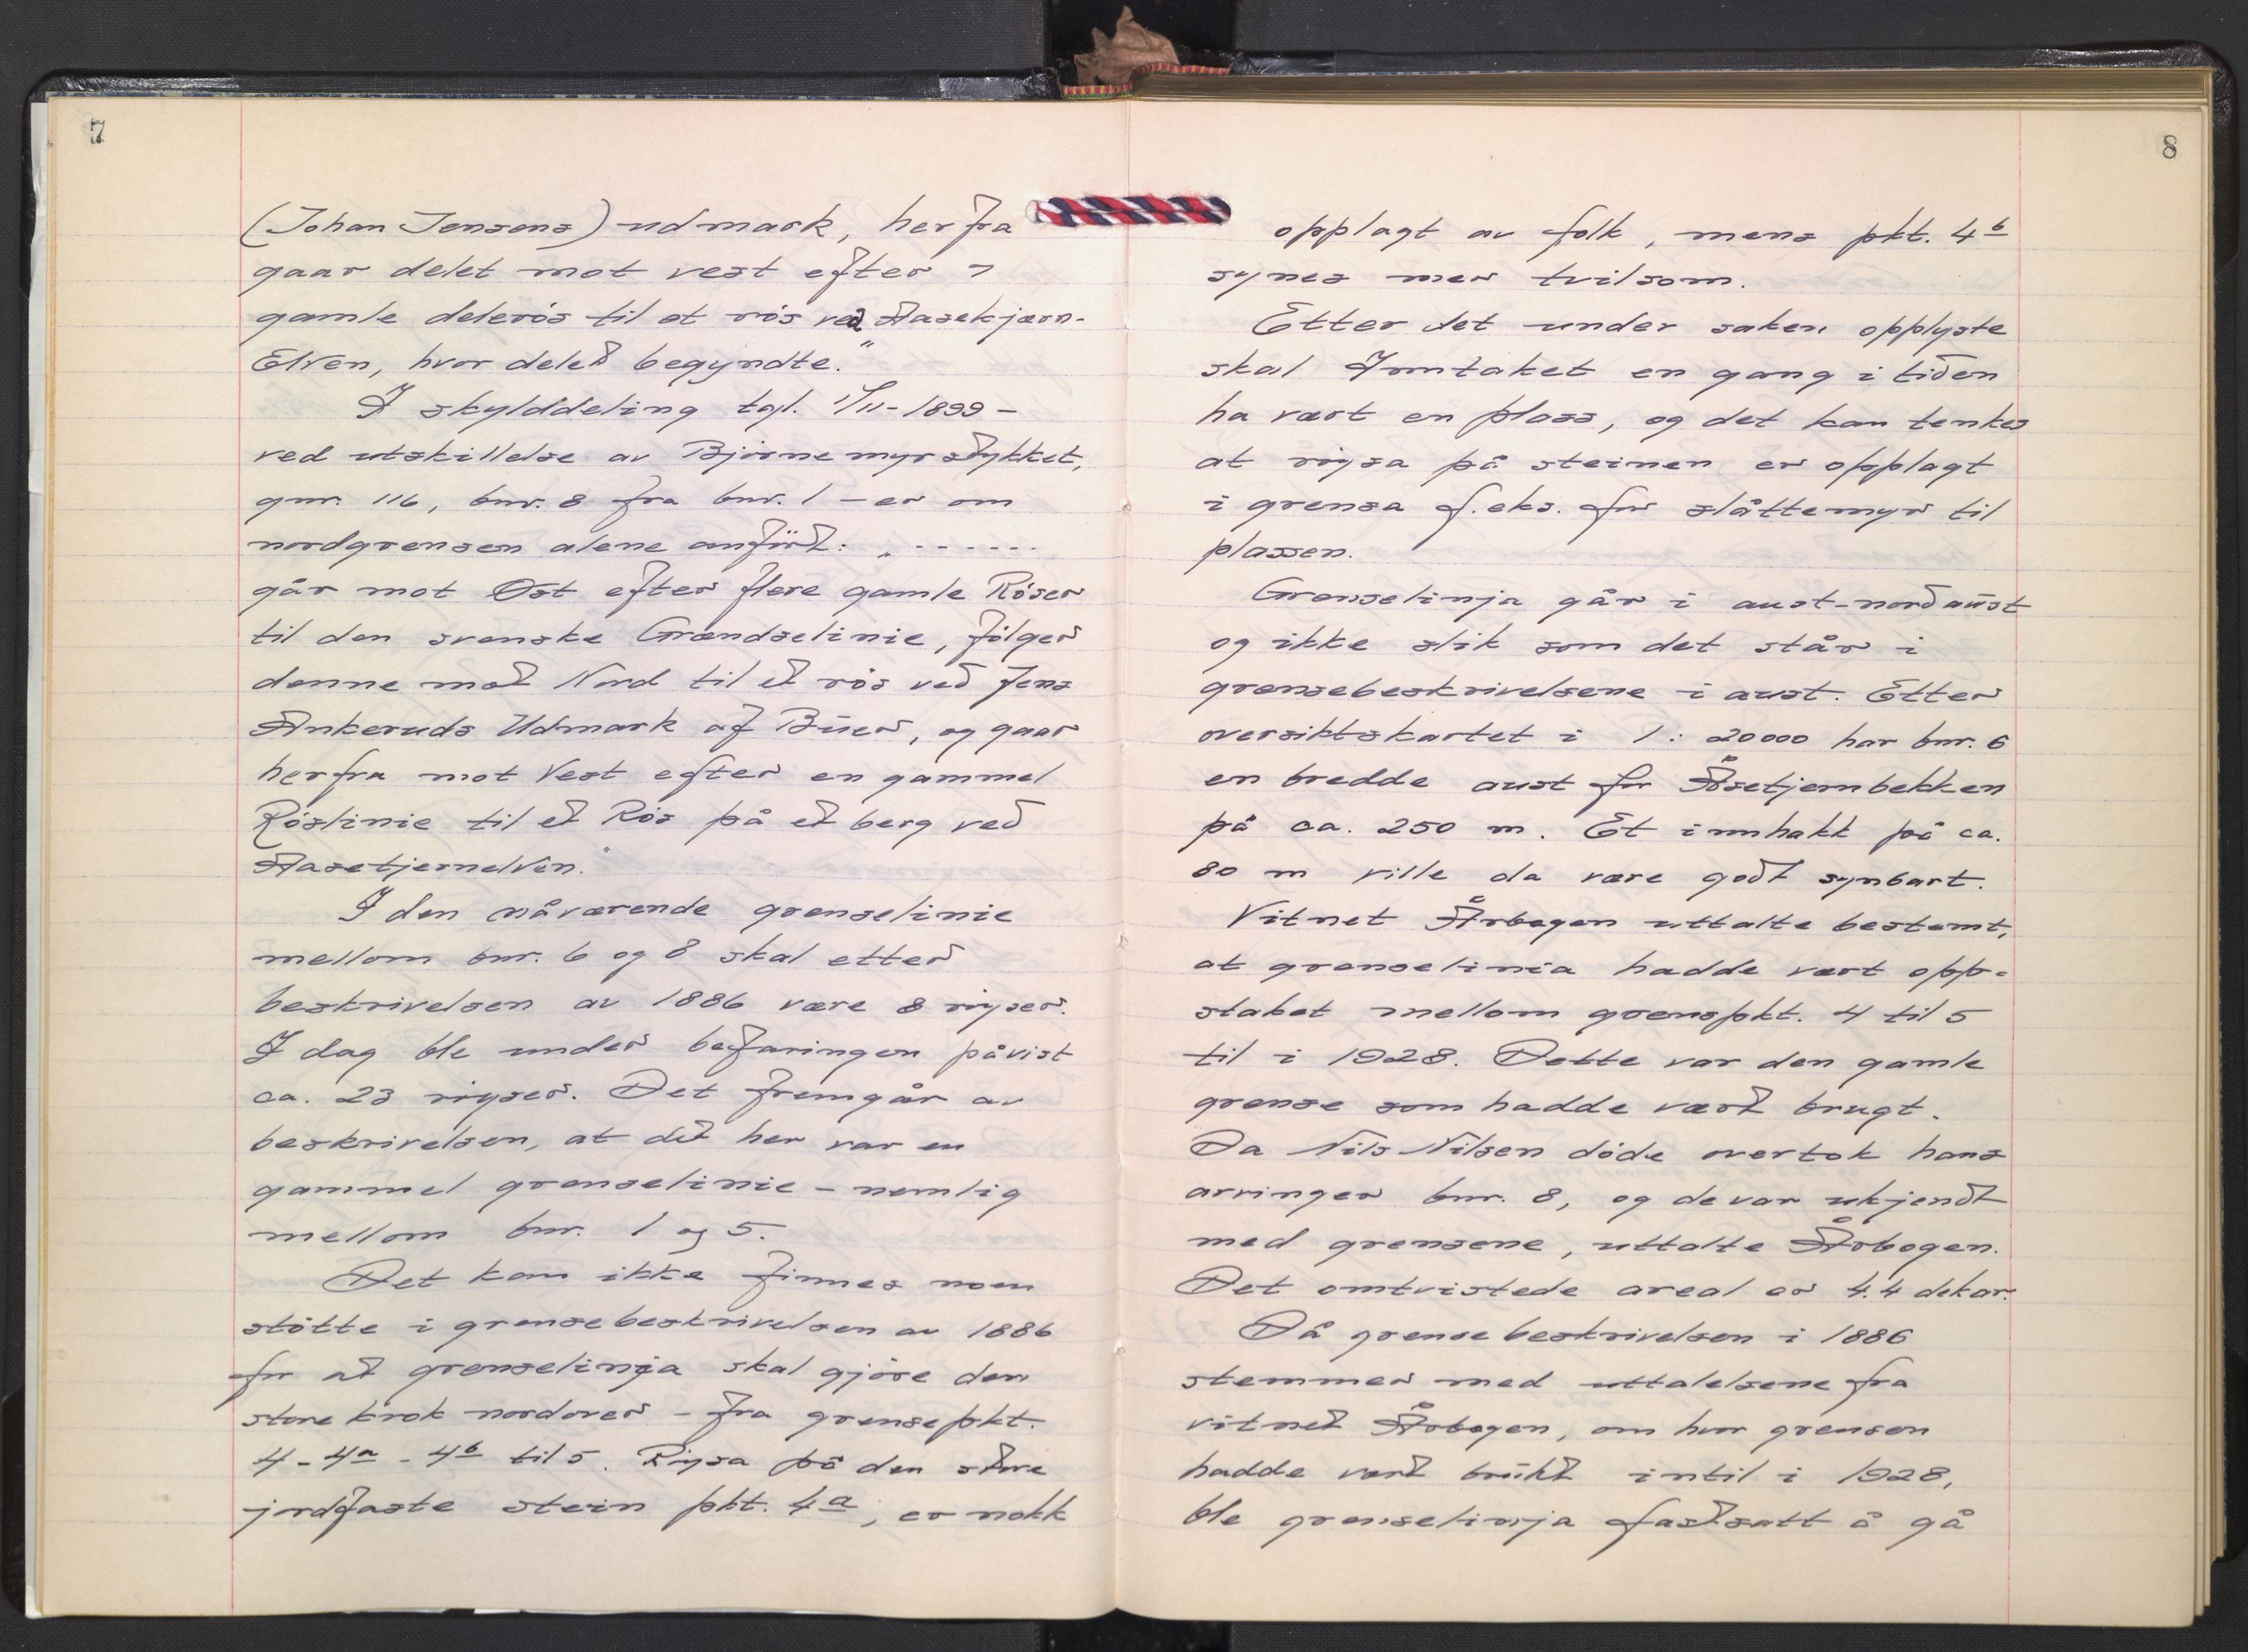 7
(Johan Jensens) udmark, herfra
gaar delet mot vest efter 7
gamle delerös til et rös ved Aasekjærn-
Elven, hvor delet begyndte."
I skylddeling tgl. 1/11-1899 -
ved utskillelse av Björnemyrstykket,
gnr. 116, bnr. 8 fra bnr. 1 - er om
nordgrensen alene anfört: „ - - - - - -
går mot Øst efter flere gamle Röser
til den svenske Grændselinie, fölger
denne mot Nord til et rös ved Jens
Ankeruds Udmark af Buer, og gaar
herfra mot Vest efter en gammel
Röslinie til et Rös på et berg ved
Aasetjernelven."
I den nåværende grenselinie
mellom bnr. 6 og 8 skal etter
beskrivelsen av 1886 være 8 röyser.
I dag ble under befaringen påvist
ca. 23 röyser. Det fremgår av
beskrivelsen, at det her var en
gammel grenselinie - nemlig
mellom bnr. 1 og 5.
Det kan ikke finnes noen
stötte i grensebeskrivelsen av 1886
for at grenselinja skal gjöre den
store krok nordover - fra grensepkt.
4 - 4a - 4b til 5. Röysa på den store
jordfaste stein pkt. 4a, er nokk
8
opplagt av folk, mens pkt. 4b
synes mer tvilsom.
Etter det under saken opplyste
skal Inntaket en gang i tiden
ha vært en plass, og det kan tenkes
at röysa på steinen er opplagt
i grensa f. eks. for slåttemyr til
plassen.
Grenselinja går i aust-nordaust
og ikke slik som det står i
grensebeskrivelsene i aust. Etter
oversiktskartet i 1: 20000 har bnr. 6
en bredde aust for Åsetjernbekken
på ca. 250 m. Et innhakk på ca.
80 m ville da være godt synbart.
Vitnet Årbogen uttalte bestemt,
at grenselinia hadde vært opp-
staket mellom grenspkt. 4 til 5
til i 1928. Dette var den gamle
grense som hadde vært brugt.
Da Nils Nilsen döde overtok hans
arvinger bnr. 8, og de var ukjendt
med grensene, uttalte Årbogen.
Det omtvistede areal er 4.4 dekar.
Då grensebeskrivelsen i 1886
stemmer med uttalelsene fra
vitnet Årbogen, om hvor grensen
hadde vært brukt intil i 1928,
ble grenselinja fastsatt å gå